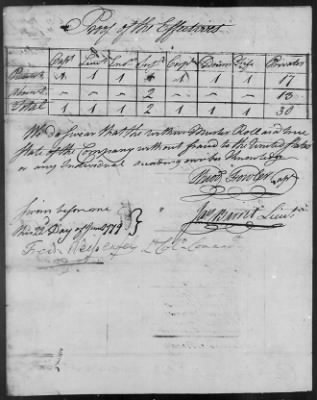 Proof of the Effectives
Capt Lieut Ens Serjts Corpl Drum Fife Privates
Present 1 1 1 2 1 1 1 17
Absent — — — — — — — 13
Total 1 1 1 2 1 1 1 30
We do swear that the within Muster Roll is a true
State of the Company without fraud to the United States
or any Individual according to our best Knowledge
Theods Fowler Capt
Lieut
Sworn before me
this Day of June 1779
Fredk Weissenfels Lt Col Comdt